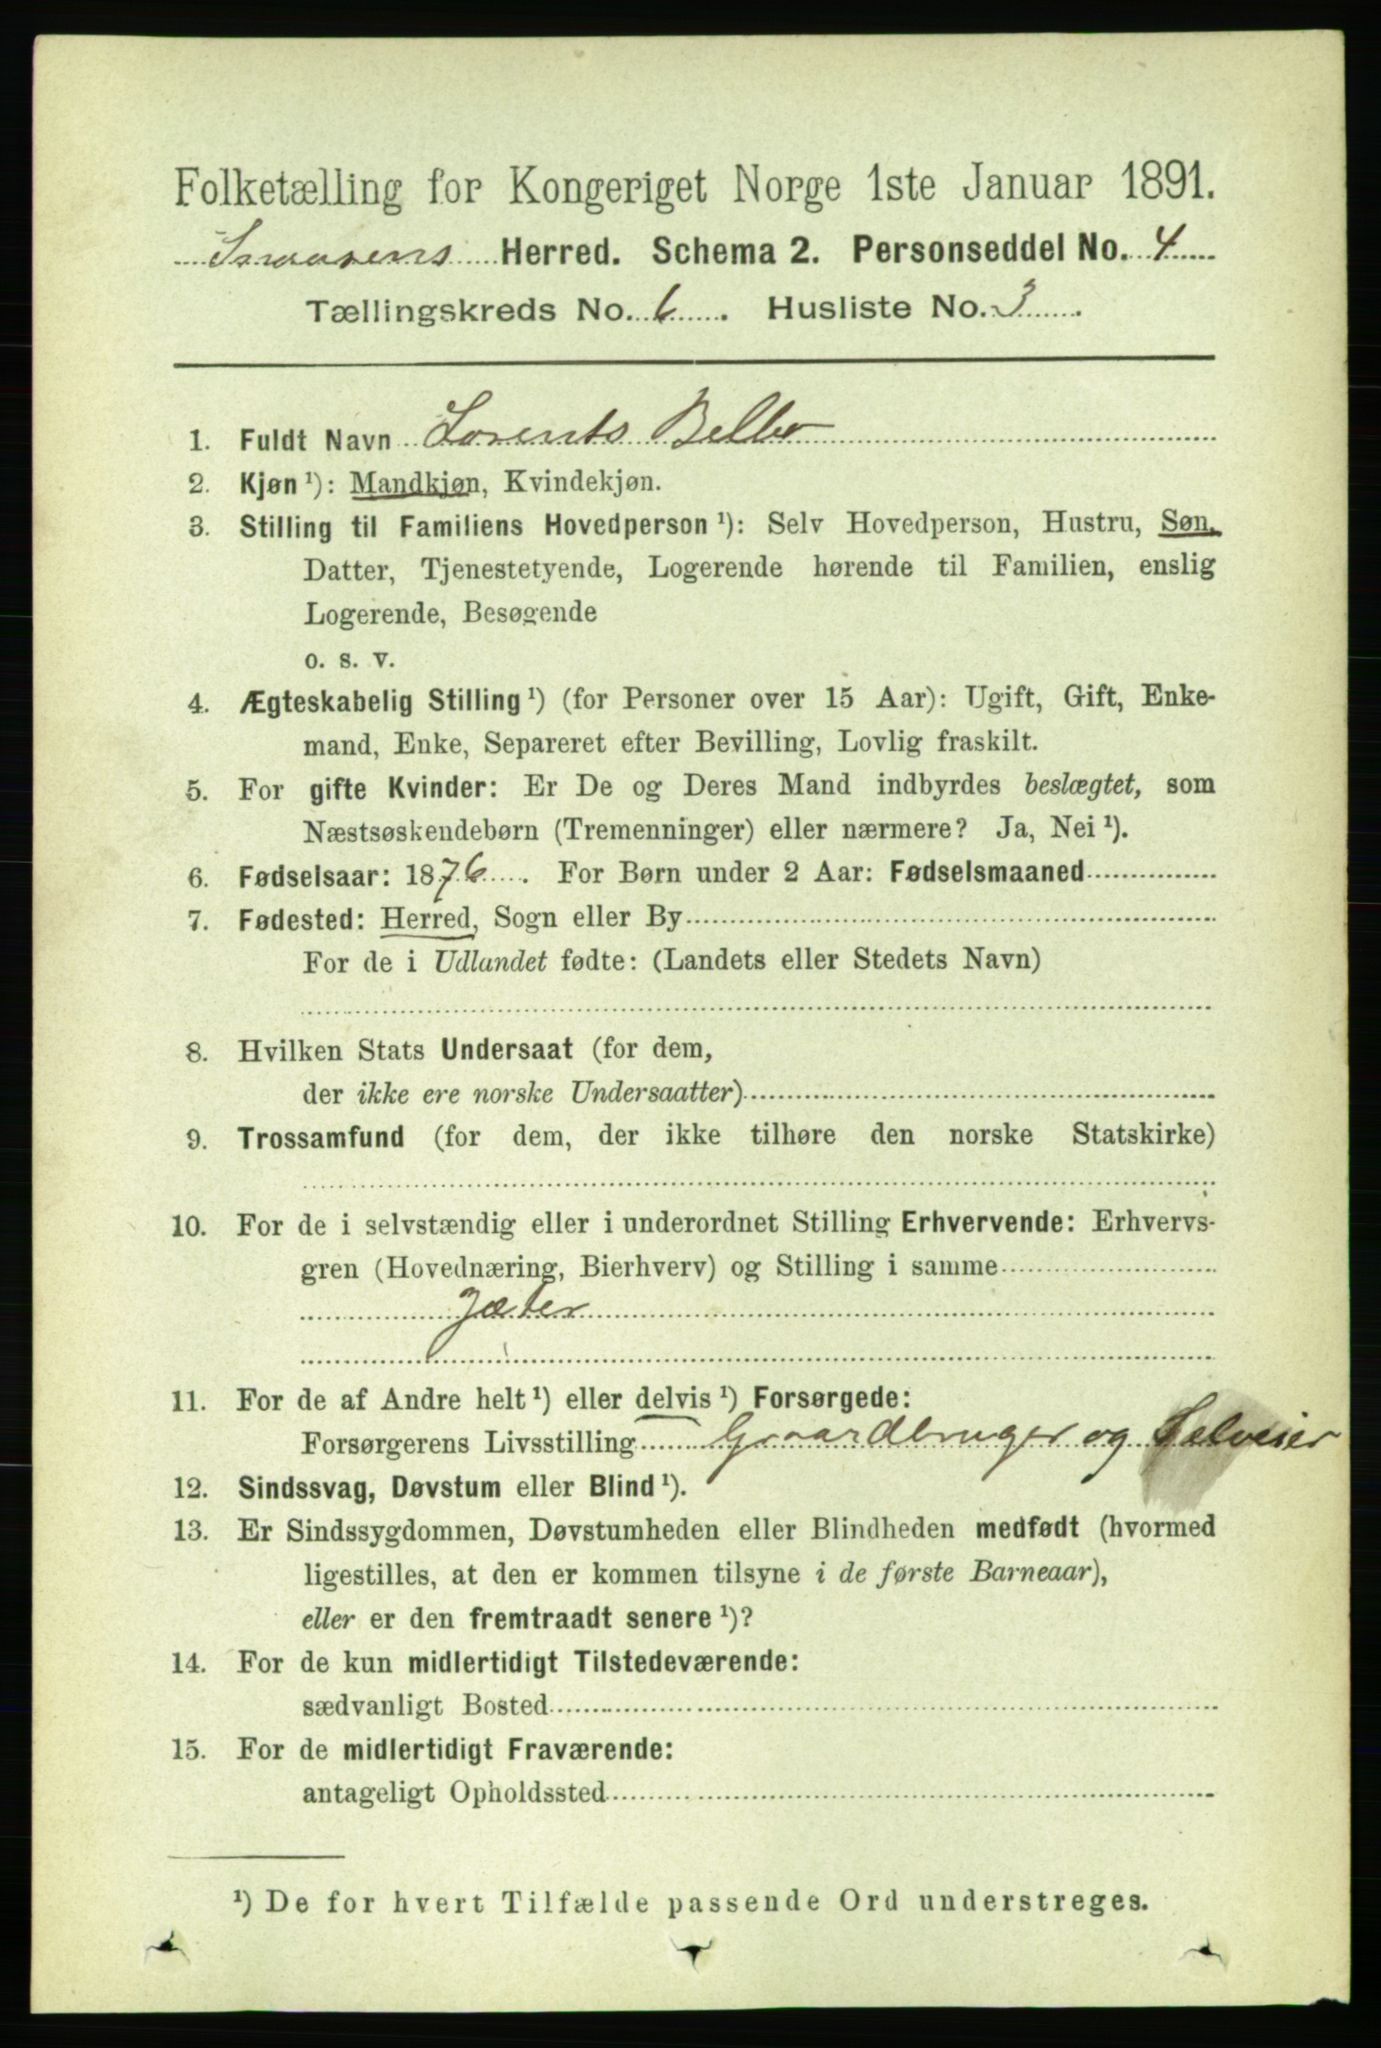 Folketælling for Kongeriget Norge 1ste Januar 1891.
Snaasens Herred. Schema 2. Personseddel No. 4
Tællingskreds No. 6. Husliste No. 3.
1. Fuldt Navn Lorents Belbo
2. Kjøn ¹): Mandkjøn, Kvindekjøn.
3. Stilling til Familiens Hovedperson ¹): Selv Hovedperson, Hustru, Søn,
Datter, Tjenestetyende, Logerende hørende til Familien, enslig
Logerende, Besøgende
o. s. v.
4. Ægteskabelig Stilling ¹) (for Personer over 15 Aar): Ugift, Gift, Enke-
mand, Enke, Separeret efter Bevilling, Lovlig fraskilt.
5. For gifte Kvinder: Er De og Deres Mand indbyrdes beslægtet, som
Næstsøskendebørn (Tremenninger) eller nærmere? Ja, Nei ¹).
6. Fødselsaar: 1876. For Børn under 2 Aar: Fødselsmaaned
7. Fødested: Herred, Sogn eller By
For de i Udlandet fødte: (Landets eller Stedets Navn)
8. Hvilken Stats Undersaat (for dem,
der ikke ere norske Undersaatter)
9. Trossamfund (for dem, der ikke tilhøre den norske Statskirke)
10. For de i selvstændig eller i underordnet Stilling Erhvervende: Erhvervs-
gren (Hovednæring, Bierhverv) og Stilling i samme
Jæter
11. For de af Andre helt ¹) eller delvis ¹) Forsørgede:
Forsørgerens Livsstilling Gaardbruger og Selveier
12. Sindssvag, Døvstum eller Blind ¹).
13. Er Sindssygdommen, Døvstumheden eller Blindheden medfødt (hvormed
ligestilles, at den er kommen tilsyne i de første Barneaar),
eller er den fremtraadt senere ¹)?
14. For de kun midlertidigt Tilstedeværende:
sædvanligt Bosted
15. For de midlertidigt Fraværende:
antageligt Opholdssted
¹) De for hvert Tilfælde passende Ord understreges.